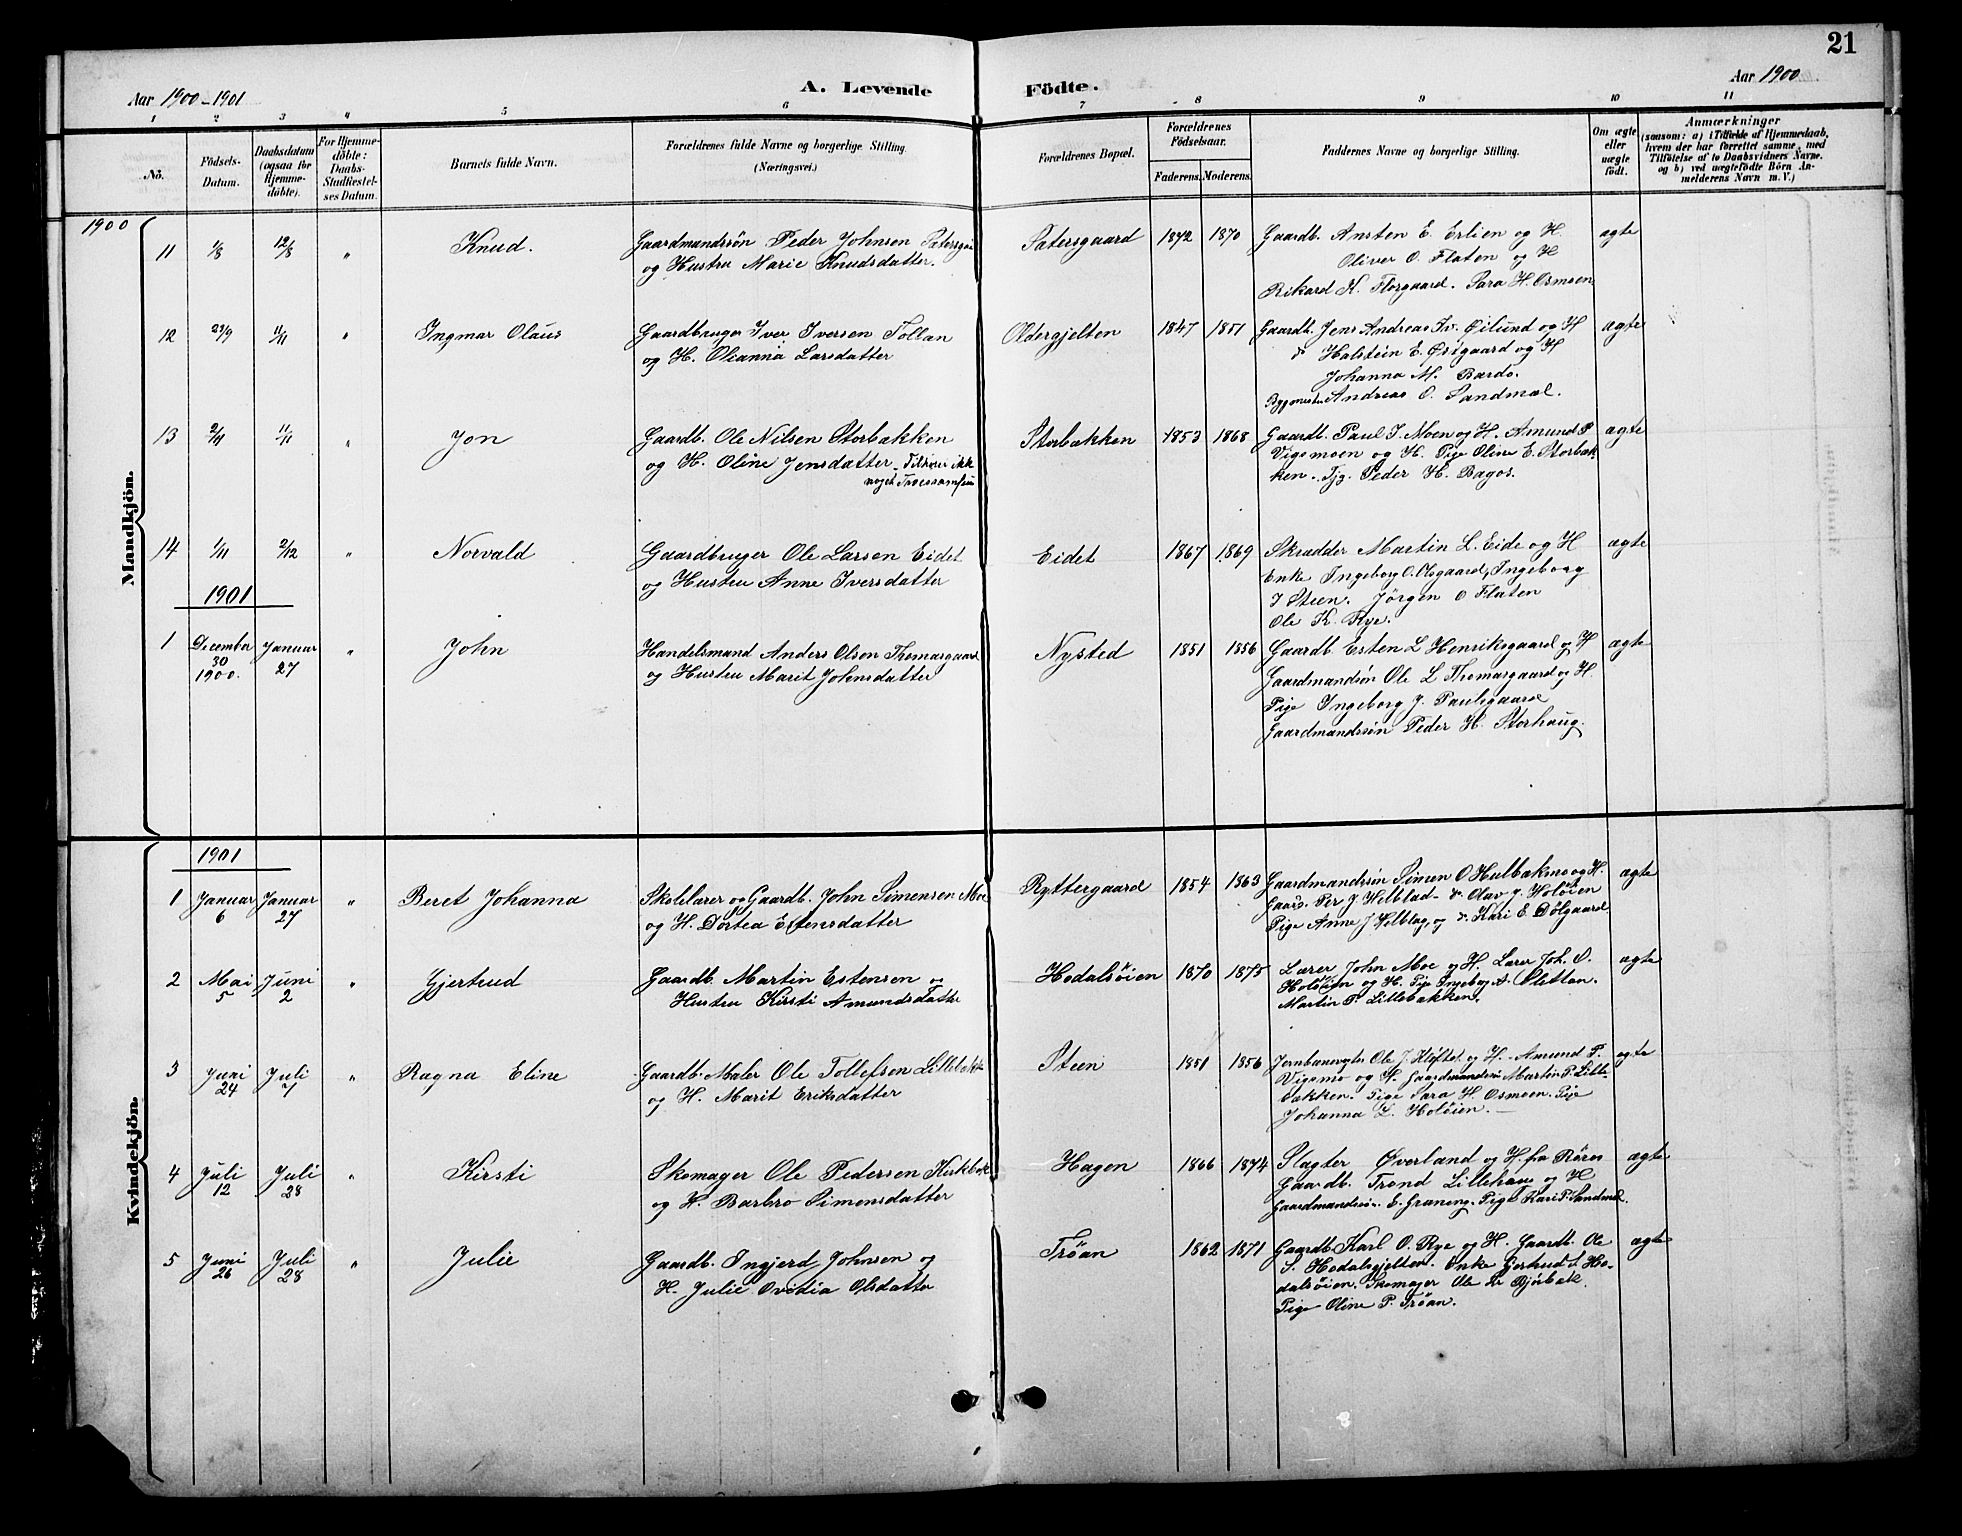 21
Aar 1900-1901
A. Levende
Födte.
Aar 1900
1 2 3 4 5 6 7 8 9 10 11
No.
Födsels-Datum.
Daabsdatum (ogsaa for Hjemme-döbte).
For Hjemme-döbte: Daabs-Stadfæstel-ses Datum.
Barnets fulde Navn.
Forældrenes fulde Navne og borgerlige Stilling.
(Næringsvei.)
Forældrenes Bopæl.
Forældrenes Födselsaar.
Faderens. Moderens.
Faddernes Navne og borgerlige Stilling.
Om ægte eller uægte födt.
Anmærkninger
(saasom: a) i Tilfælde af Hjemmedaab,
hvem der har forrettet samme, med
Tilföielse af to Daabsvidners Navne.
og b) ved uægtefödte Börn An-
melderens Navn m. V.)
Mandkjön.
1900
11 1/8 12/8 " Knud. Gaardmandssön Peder Johnsen
og Hustru Marie Knudsdatter.
Satersgaard 1872 1870 Gaardb. Ansten E. Erlien og H. ægte
Oliver O. Flaten og H
Rikard K. Florgaard. Sara H. Osmoen
12 23/9 11/11 " Ingmar Olaus Gaardbruger Iver Iversen Tollan
og H. Oleanna Larsdatter
Oldergjelten 1847 1851 Gaardb. Jens Andreas Iv. Øilund og H ægte
" Halstein E. Østgaard og H
Johanna M. Bardo.
Bygmester Andreas O. Sandmæl.
13 2/9 11/11 " Jon Gaardb. Ole Nilsen Storbakken
og H. Oline Jensdatter - Tilhører ikke
noget Troessamfun
Storbakken 1853 1868 Gaardb. Paul J. Moen og H. Amund P ægte
Vigsmoen og H. Pige Oline E. Storbak
ken. Tjg. Peder H. Bagos.
14 1/11 2/12 " Norvald Gaardbruger Ole Larsen Eidet
og Hustru Anne Iversdatter
Eidet 1867 1869 Skrædder Martin L. Eide og H ægte
Enke Ingeborg O. Olsgaard, Ingeborg
J Steen. Jörgen O Flaten
Ole K. Rye.
1901
1 December 30 1900. Januar 27 " John Handelsmand Anders Olsen Thomasgaard
og Hustru Marit Johnsdatter
Nysted 1851 1856 Gaardb Esten L Henriksgaard og H ægte
Gaardmandsön Ole L Thomasgaard og H.
Pige Ingeborg J. Paulsgaard
Gaardmandssön Peder H. Storhaug.
Kvindekjön.
1901
1 Januar 6 Januar 27 " Beret Johanna Skolelærer og Gaardb. John Simensen Moe
og H. Dortea Estensdatter
Ryttergaard 1854 1863 Gaardmandssön Simen O Hulbakmo og H. ægte
Gaardb. Per J Helblad - " Olav J. Holöien
Pige Anne J Helblag, og " Kari E. Dölgaard
2 Mai 5 Juni 2 " Gjertrud Gaardb. Martin Estensen og
Hustru Kirsti Amundsdatte
Hodalsöien 1870 1875 Lærer John Moe og H. Lærer Joh. S. ægte
Holöien og H. Pige Ingebog A. Sletten.
Martin P. Lillebakken.
3 Juni 24 Juli 7 " Ragna Eline Gaardb. Maler Ole Tollefsen Lillebakk
og H. Marit Eriksdatter
Steen 1851 1856 Jernbanevogter Ole J. Klöftet og H. Amund P. ægte
Vigsmo og H. Gaardmandssön Martin P. Lille-
bakken. Pige Sara H. Osmoen. Pige
Johanna L. Holöien.
4 Juli 12 Juli 28 " Kirsti Skomager Ole Pedersen Kirkbak
og H. Barbro Simensdatter
Hagen 1866 1874 Slagter Øverland og H. fra Röros ægte
Gaardb. Trond Lillehave og H
Gaardmandssön. E. Graneng. Pige Kari P. Sandmæl.
5 Juni 26 Juli 28 " Julie Gaardb. Ingjerd Johnsen og
H. Julie Ovidia Olsdatter
Tröan 1862 1871 Gaardb. Karl O. Rye og H. Gaardb. Ole ægte
S. Hodalsgjelten. Enke Gjertrud S. Ho-
dalsöien. Skomager Ole Bjørbak.
Pige Oline P. Tröan.